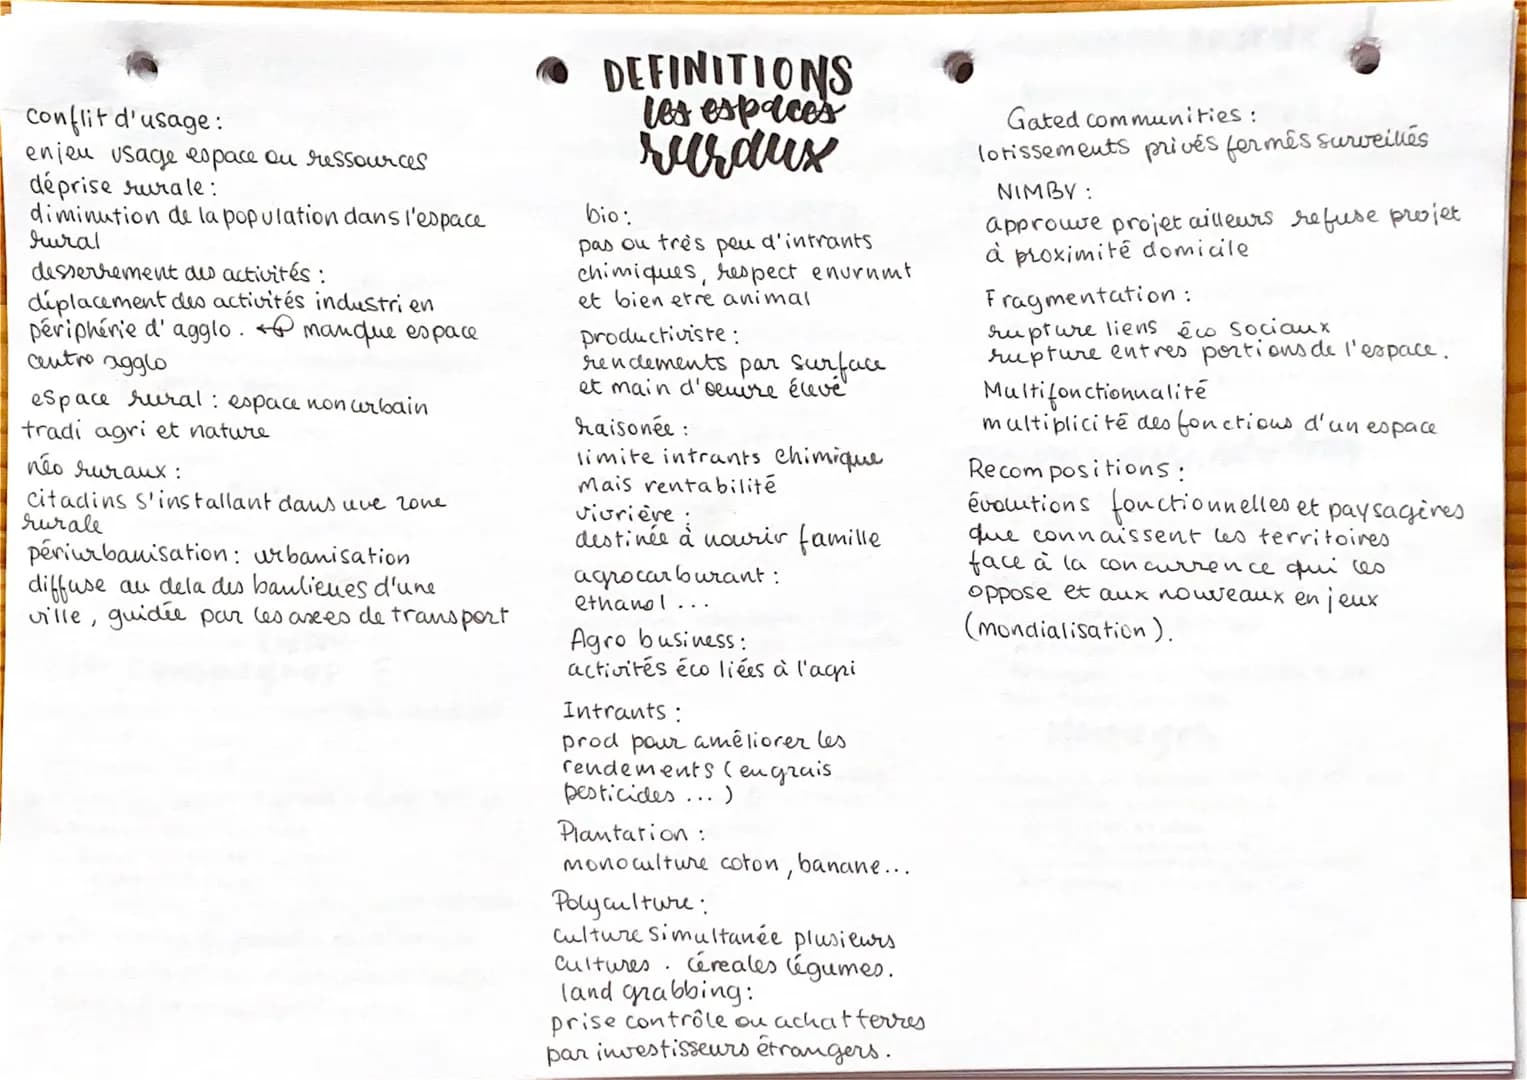 DEFINITIONS
les espaces
ruraux
conflit d'usage :
enjeu usage espace ou ressources
déprise rurale :
diminution de la population dans l'espace
rural
desserrement des activités :
déplacement des activités industri en
périphérie d'agglo . manque espace
centre agglo
espace rural : espace non urbain
tradi agri et nature
néo ruraux :
citadins s'installant dans une zone
rurale
périurbanisation : urbanisation
diffuse au dela des banlieues d'une
ville, guidée par les axes de transport
bio :
pas ou très peu d'intrants
chimiques, respect envrnmt
et bien etre animal
productiviste :
rendements par surface
et main d'oeuvre élevé
raisonée :
limite intrants chimique
mais rentabilité
vivrière :
destinée à nourir famille
agrocarburant :
ethanol ...
Agro business :
activités éco liées à l'agri
Intrants :
prod pour améliorer les
rendements (engrais
pesticides ...)
Plantation :
monoculture coton, banane...
Polyculture :
culture simultanée plusieurs
cultures . céreales légumes.
land grabbing :
prise contrôle ou achat terres
par investisseurs étrangers.
Gated communities :
lotissements privés fermés surveillés
NIMBY :
approuve projet ailleurs refuse projet
à proximité domicile
Fragmentation :
rupture liens éco sociaux
rupture entres portions de l'espace.
Multifonctionnalité
multiplicité des fonctions d'un espace
Recompositions :
évolutions fonctionnelles et paysagères
que connaissent les territoires
face à la concurrence qui les
oppose et aux nouveaux enjeux
(mondialisation).